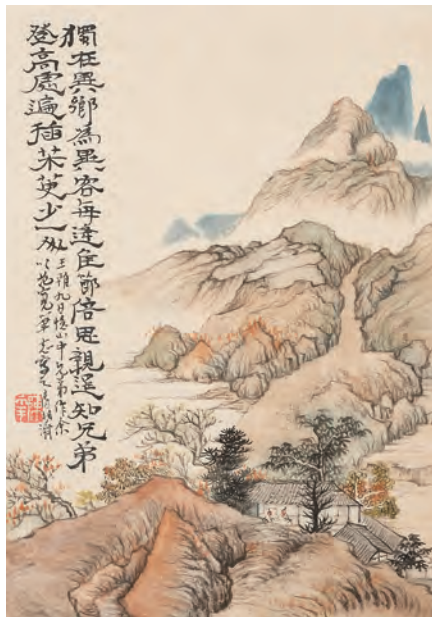 獨在異鄉為異客每逢佳節倍思親遥知兄弟
登高處遍插茱萸少一人
王維九日憶山中兄弟作余
以范寬筆意寫之清湘濟